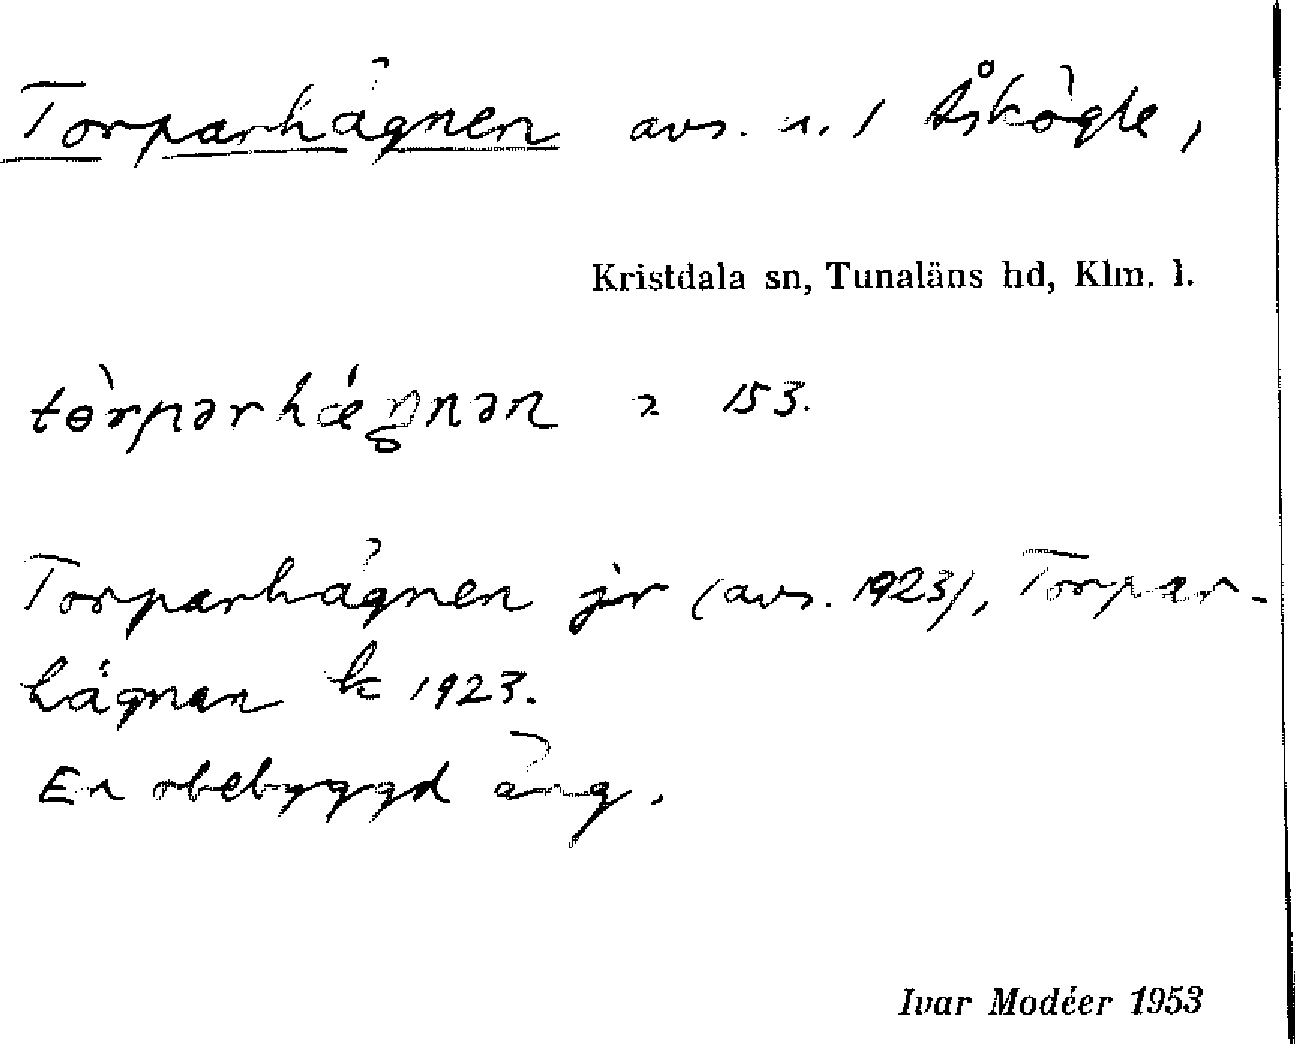 Torparhägnen avs. n. 1 Åskögle,
Kristdala sn, Tunaläns hd, Klm. l.
tɵ̀rpərhǽŋnən 2 153.
Torparhägnen jr (avs. 1923), Torpar-
hägnan k 1923.
En obebyggd äng.
Ivar Modéer 1953